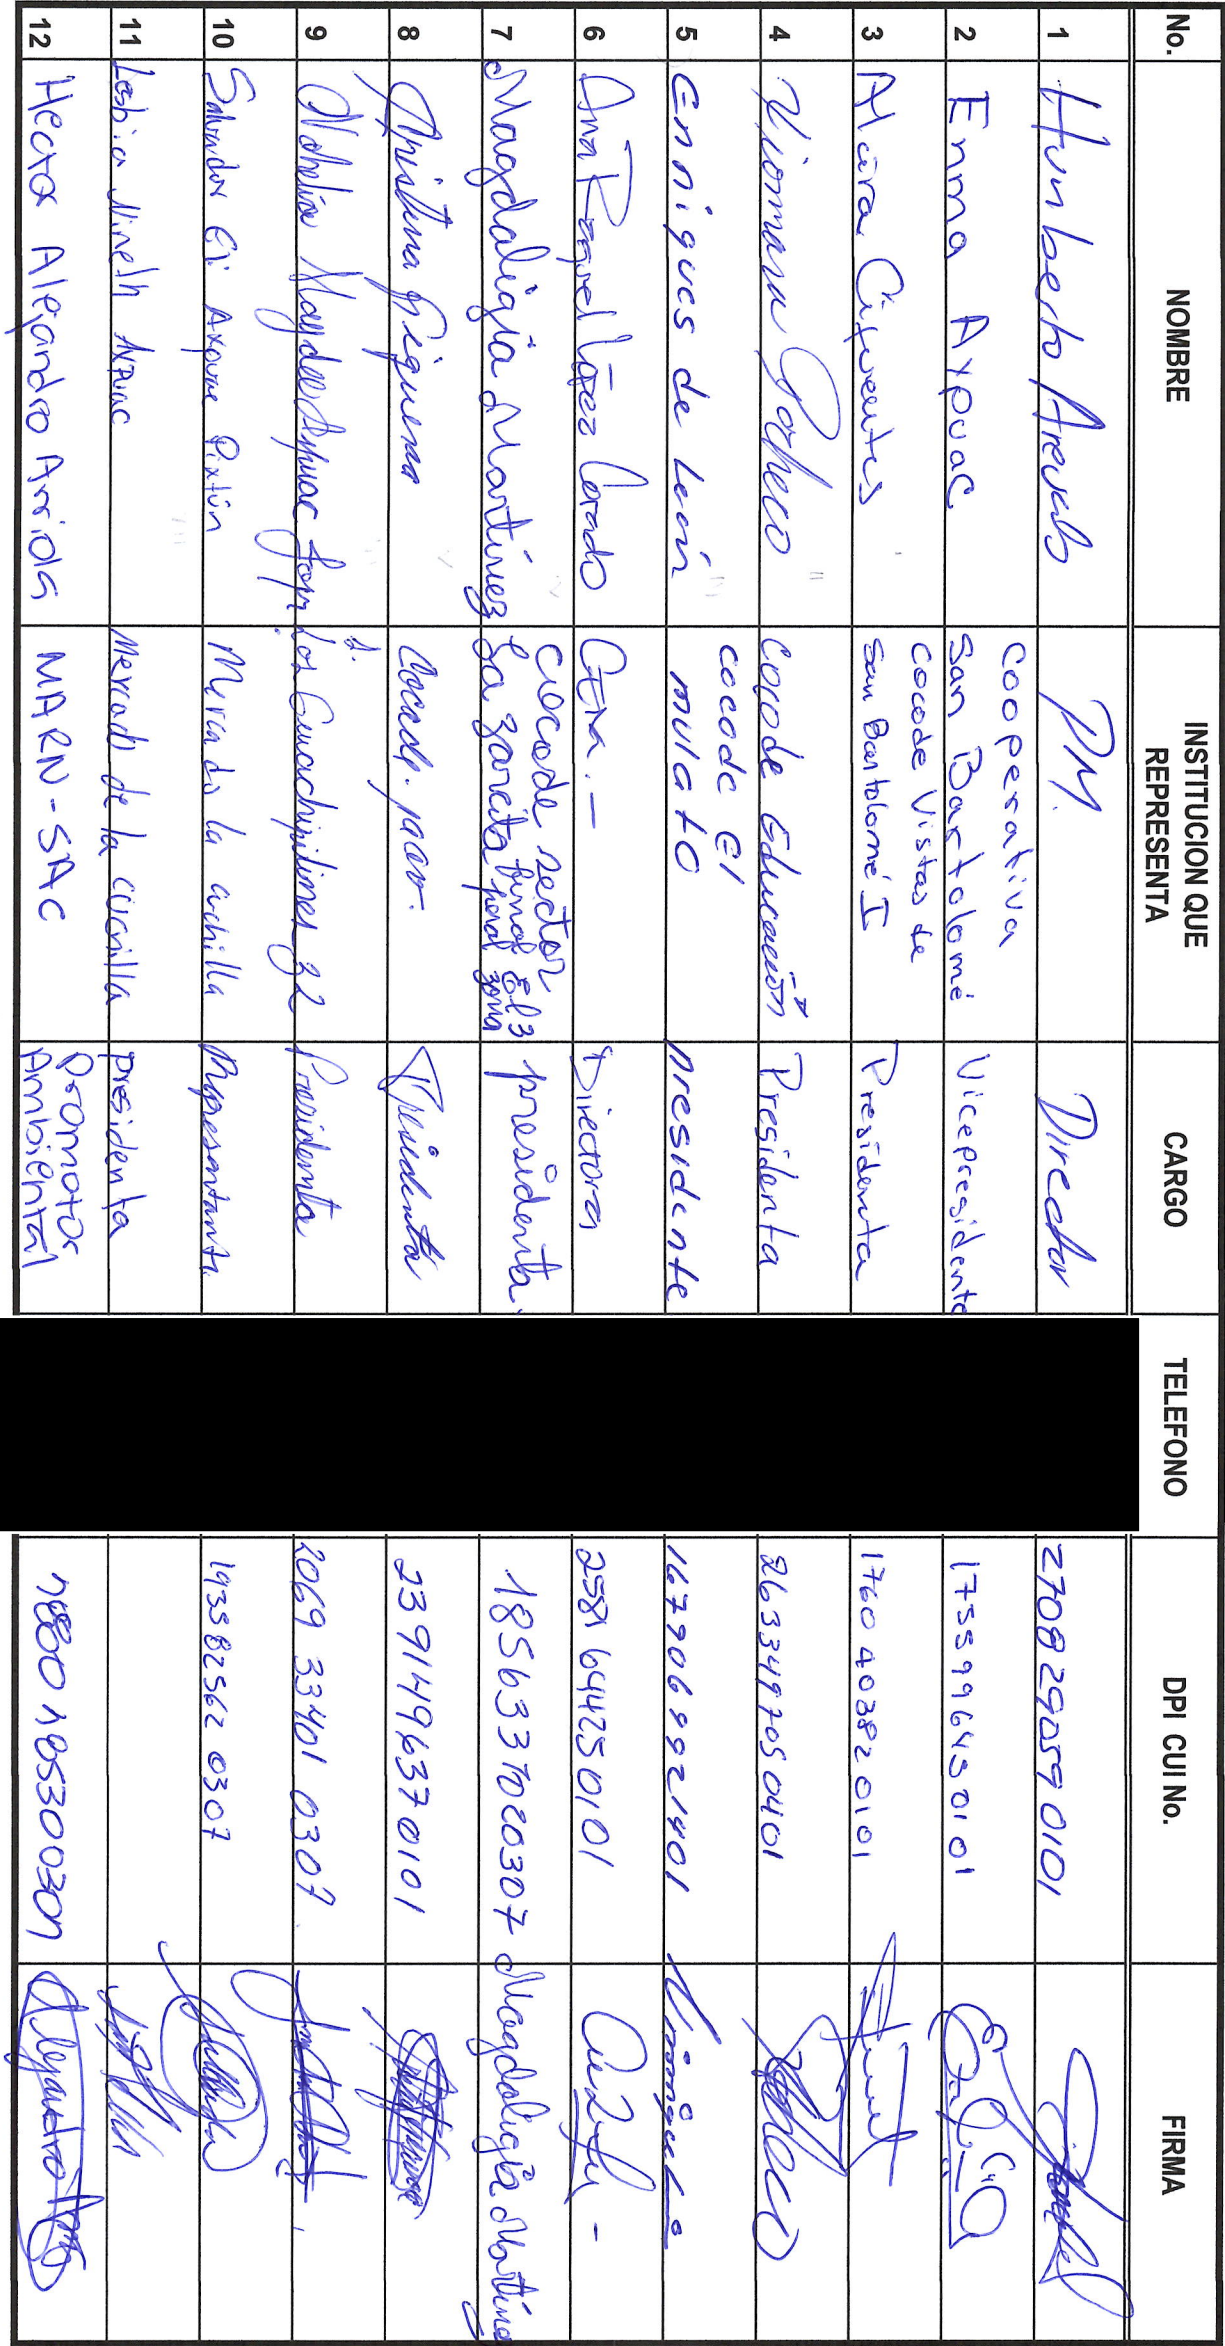 No. NOMBRE INSTITUCION QUE REPRESENTA CARGO TELEFONO DPI CUI No. FIRMA
1 Humberto Arevalo PM. Director 2708 29059 0101
2 Enma Axpuac Cooperativa San Bartolomé Vicepresidenta 1755 99645 0101
3 Alcira Cifuentes Cocode Vistas de San Bartolomé I Presidenta 1760 40382 0101
4 Viomara Pacheco Cocode Educación Presidenta 2633 49705 0401
5 Enriques de León cocode El mulato presidente 1679069921401
6 Ana Raquel López Directora 0101
7 Magdaligia Martínez Cocode sector La zarcita final El peral zona 3 presidenta. 1856337020307 Magdaligia Martínez
8 Cristina Siguenza Cocode. Presidenta 2391149637 0101
9 Los Guachipilines z 2 Presidenta 2069 33401 0307
10 Salvador Eli Axpuac Pixtún Mercado la cuchilla Representante 193582562 0307
11 Lesbia Nineth Axpuac Mercado de la cuchilla presidenta
12 Hector Alejandro Arriola MARN-SAC Promotor Ambiental